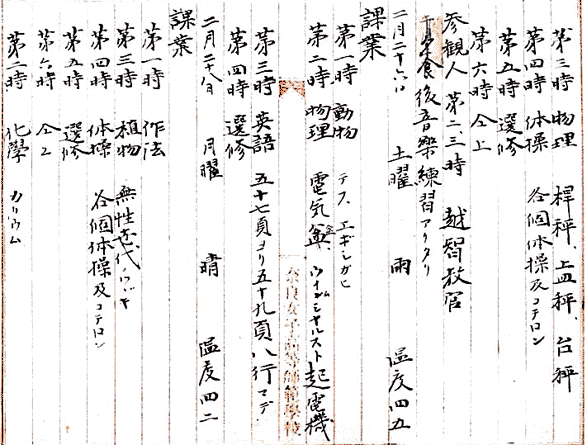 第三時 物理 桿秤、上皿秤、台秤
第四時 体操 各個体操及コテロン
第五時 選修
第六時 仝上
参観人 第二三時 越智教官
午食後音楽練習アリタリ
二月二十六日 土曜 雨 温度四五
課業
第一時 動物 テス、エギシガヒ
第二時 物理 電気盆、ウイムシャルスト起電機
奈良女子高等師範学校
第三時 英語 五十七頁ヨリ五十九頁八行マデ
第四時 選修
二月二十八日 月曜 晴 温度四二
課業
第一時 作法
第三時 植物 無性世代ノ
第四時 体操 各個体操及コテロン
第五時 選修
第六時 仝上
第二時 化學 カリウム